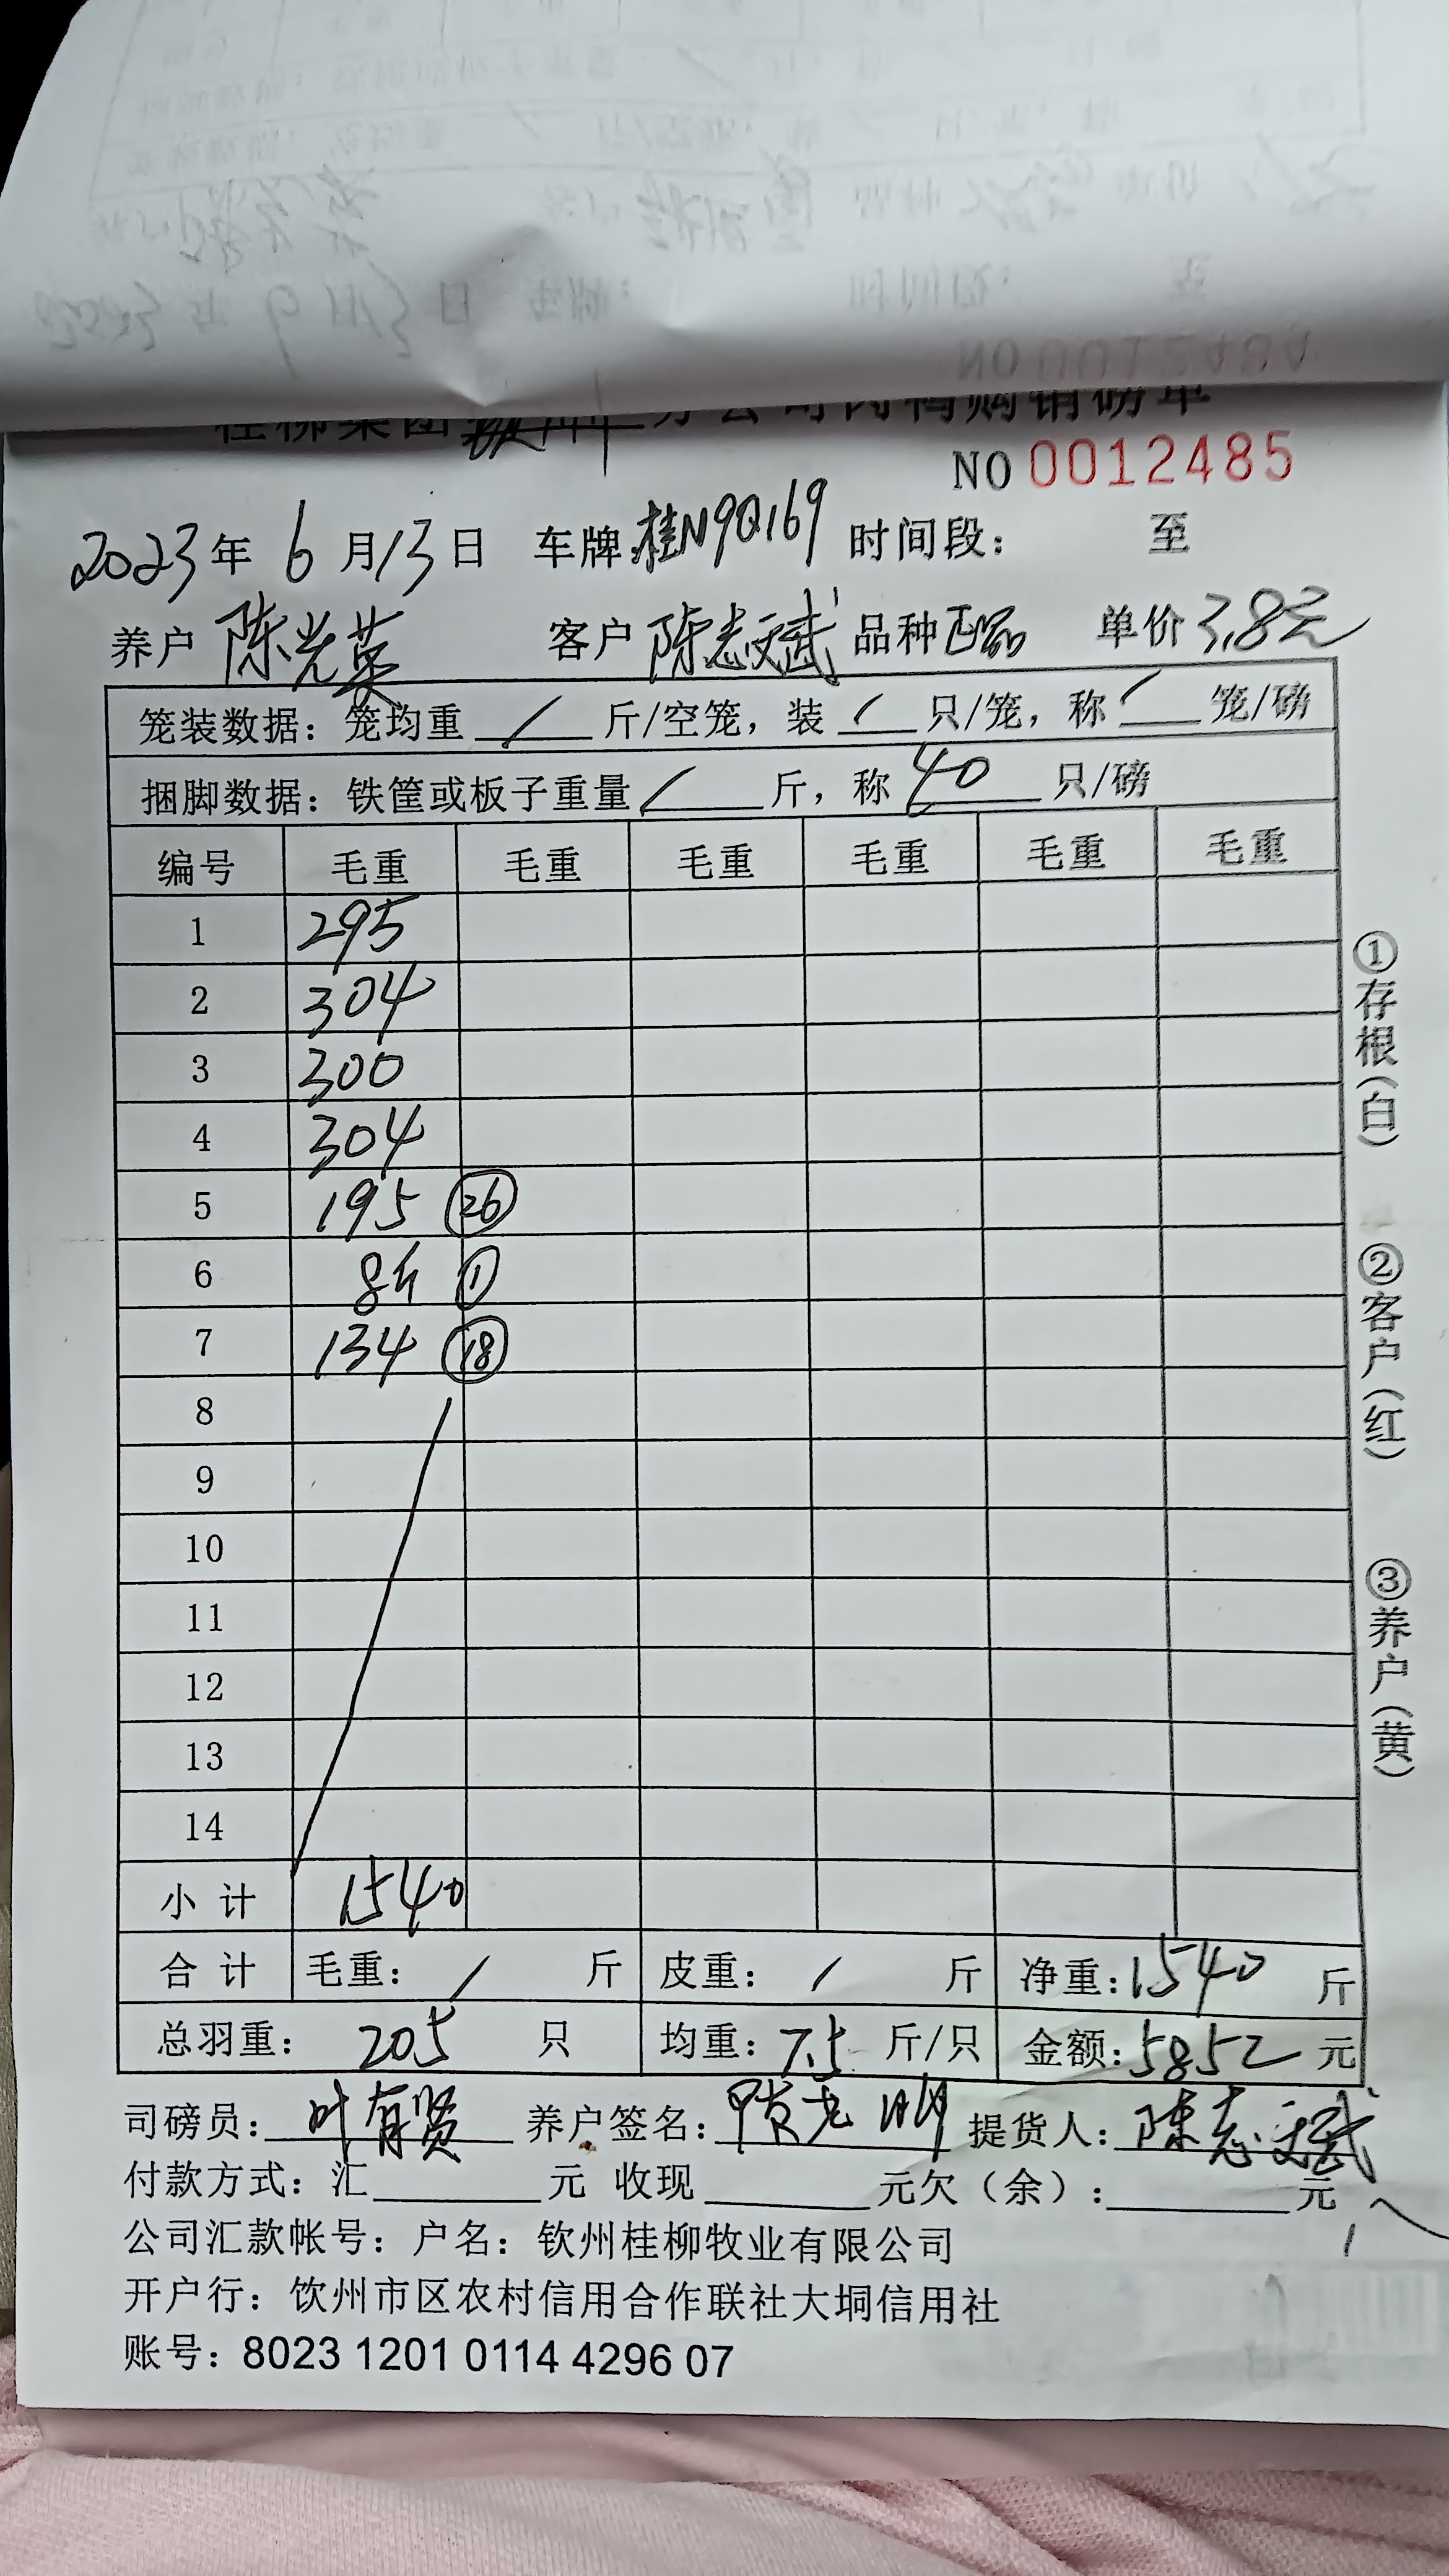 桂柳集团钦州分公司肉鸭购销磅单
NO 0012485
2023年6月13日 车牌:桂N9Q169 时间段: 至
养户 陈光英 客户 陈志斌 品种 正品 单价 3.8元
笼装数据: 笼均重 / 斤/空笼, 装 / 只/笼, 称 / 笼/磅
捆脚数据: 铁筐或板子重量 / 斤, 称 40 只/磅
编号 毛重 毛重 毛重 毛重 毛重 毛重
1 295
2 304
3 300
4 304
5 195 26
6 8斤 1
7 134 18
8
9
10
11
12
13
14
小计 1540
合计 毛重: / 斤 皮重: / 斤 净重:1540 斤
总羽重: 205 只 均重: 7.5 斤/只 金额:5852 元
司磅员: 叶有贤 养户签名: 提货人: 陈志斌
付款方式: 汇 元 收现 元欠(余): 元
公司汇款帐号: 户名: 钦州桂柳牧业有限公司
开户行: 饮州市区农村信用合作联社大垌信用社
账号: 8023 1201 0114 4296 07
①存根(白) ②客户(红) ③养户(黄)